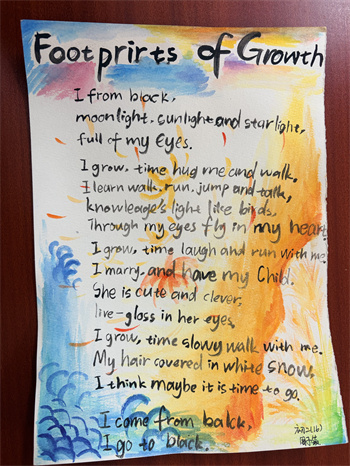 Footprirts of Growth
I from black,
moonlight, sunlight and starlight,
full of my eyes.
I grow, time hug me and walk,
I learn walk, run, jump and talk,
knowleage's light like birds.
Through my eyes fly in my heart
I grow, time laugh and run with me.
I marry, and have my Child.
She is cute and clever,
live-gloss in her eyes,
I grow, time slowy walk with me.
My hair covered in white snow,
I think maybe it is time to go.
I come from balck,
I go to black.